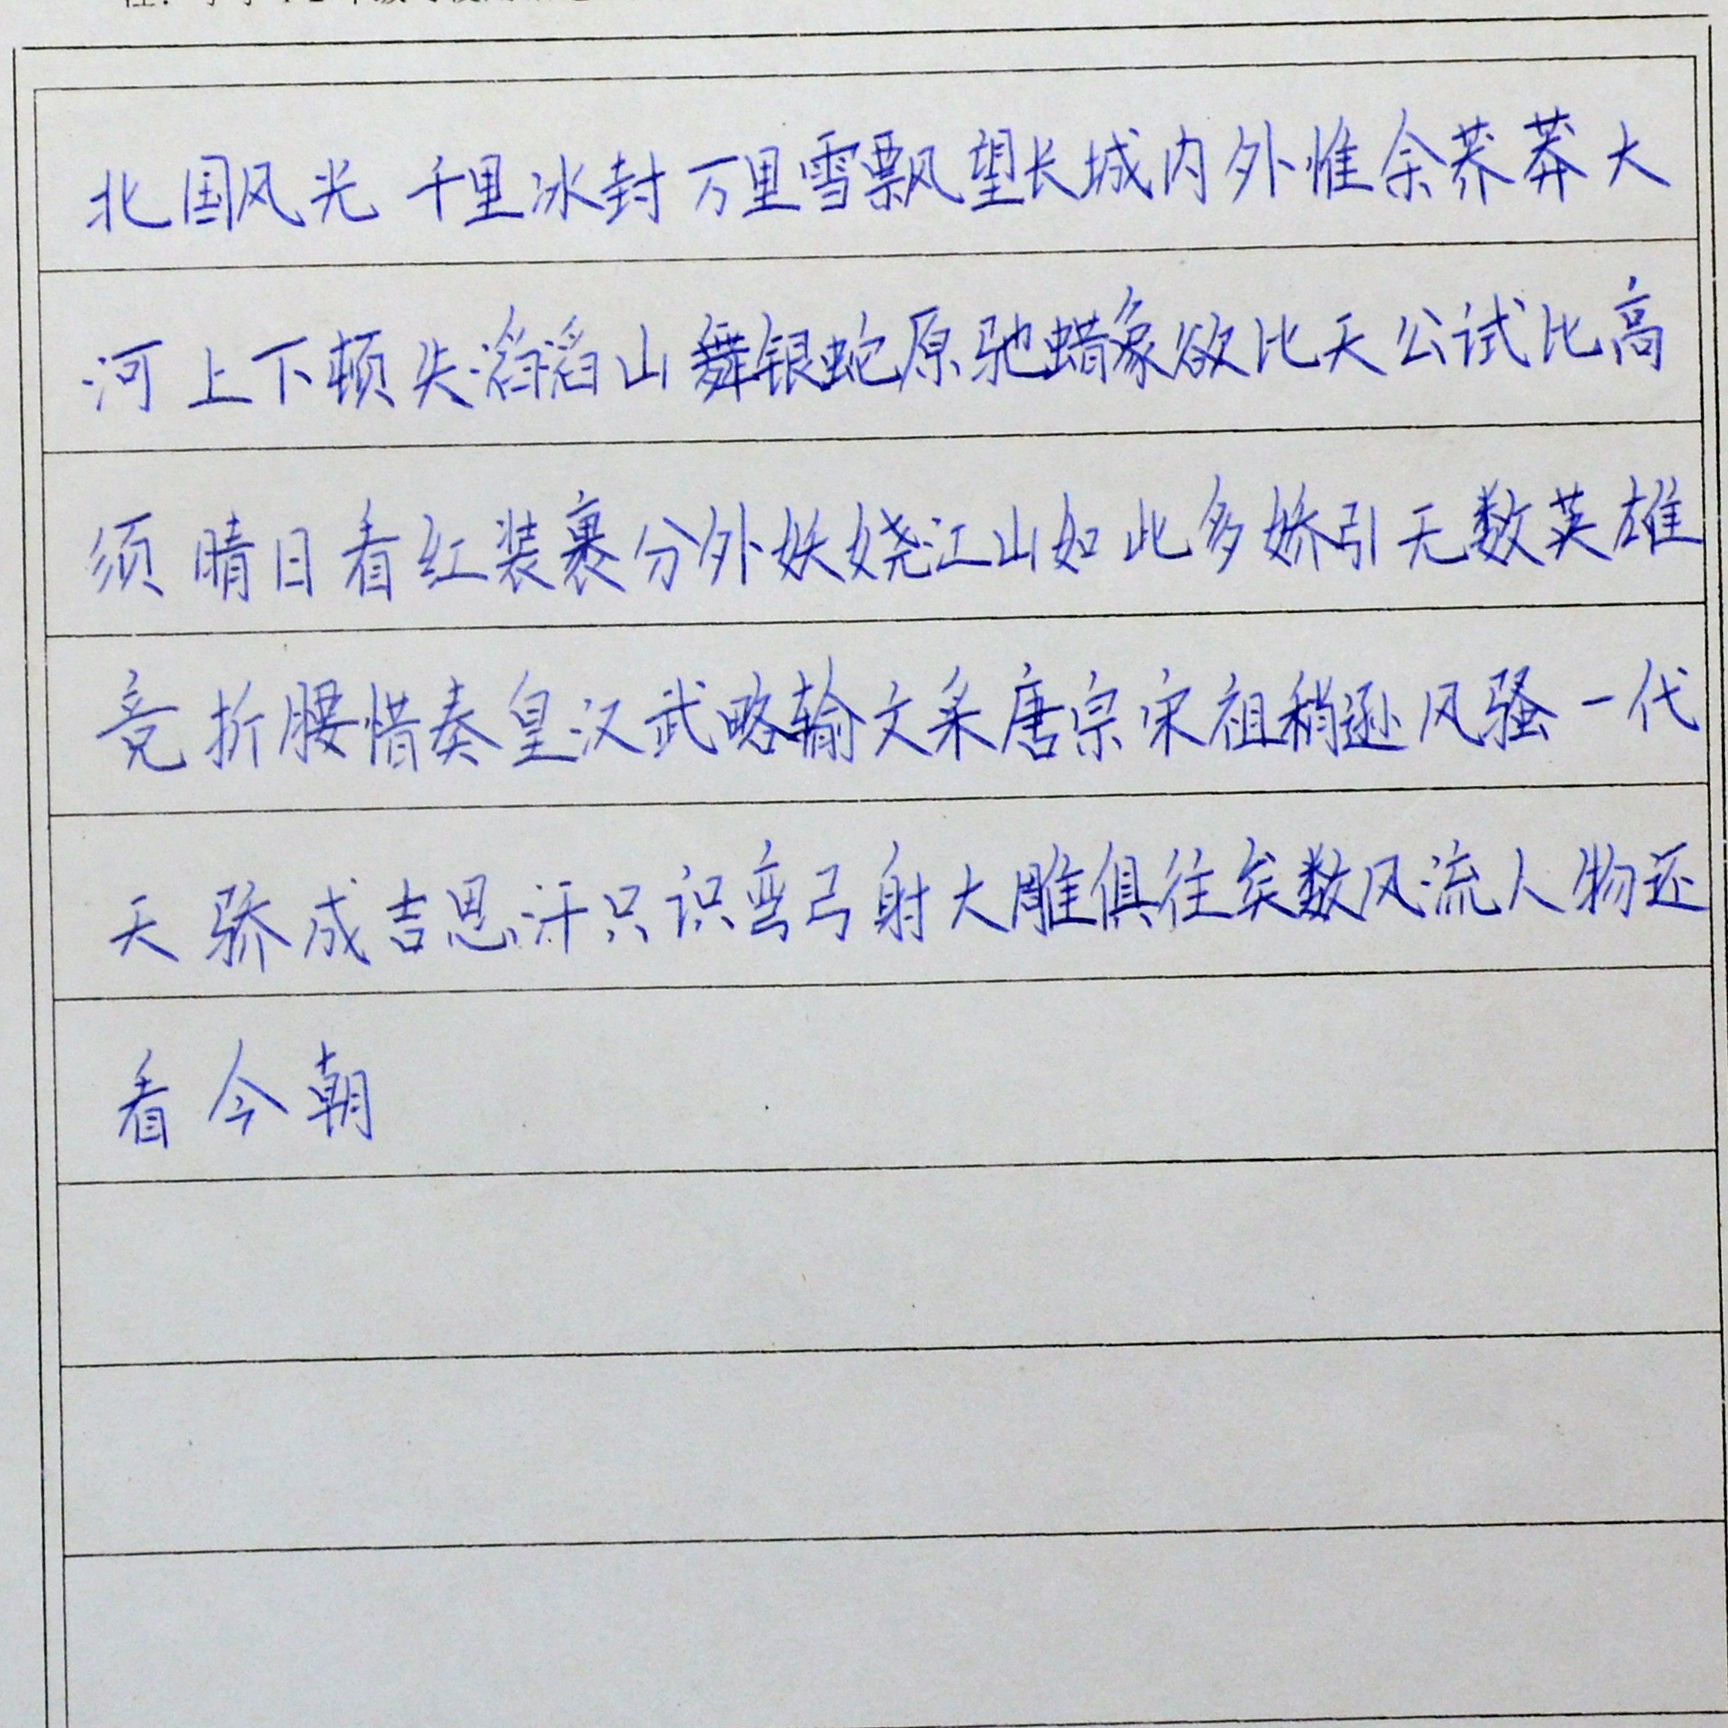 北国风光千里冰封万里雪飘望长城内外惟余莽莽大
河上下顿失滔滔山舞银蛇原驰蜡象欲比天公试比高
须晴日看红装裹分外妖娆江山如此多娇引无数英雄
竞折腰惜秦皇汉武略输文采唐宗宋祖稍逊风骚一代
天骄成吉思汗只识弯弓射大雕俱往矣数风流人物还
看今朝